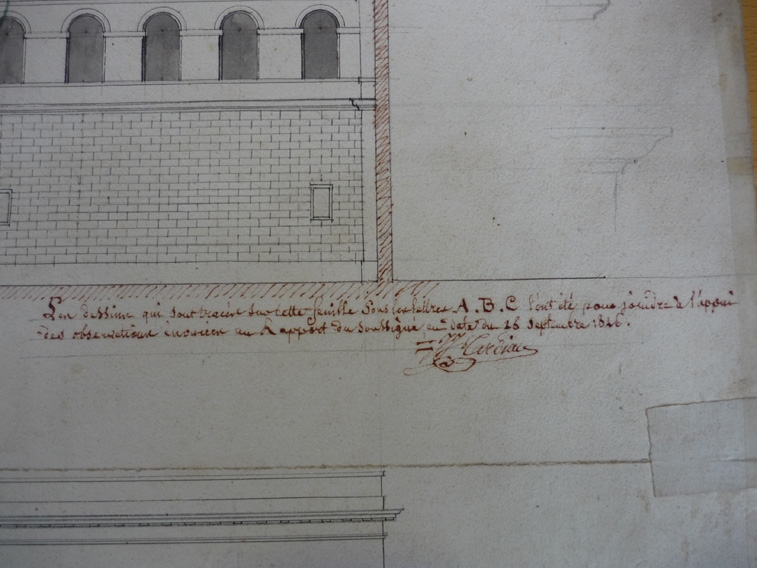 Les dessins qui sont tracés sur cette feuille sous les lettres A. B. C l'ont été pour joindre à l'appui
des observations énoncées au Rapport du soussigné en date du 28 Septembre 1846.